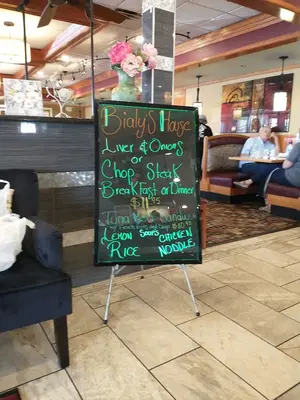 Bialy's House
Liver & Onions
or
Chop Steak
Breakfast or Dinner
$11.95
Tuna
Soups
Lemon
Rice
Chicken
Noodle